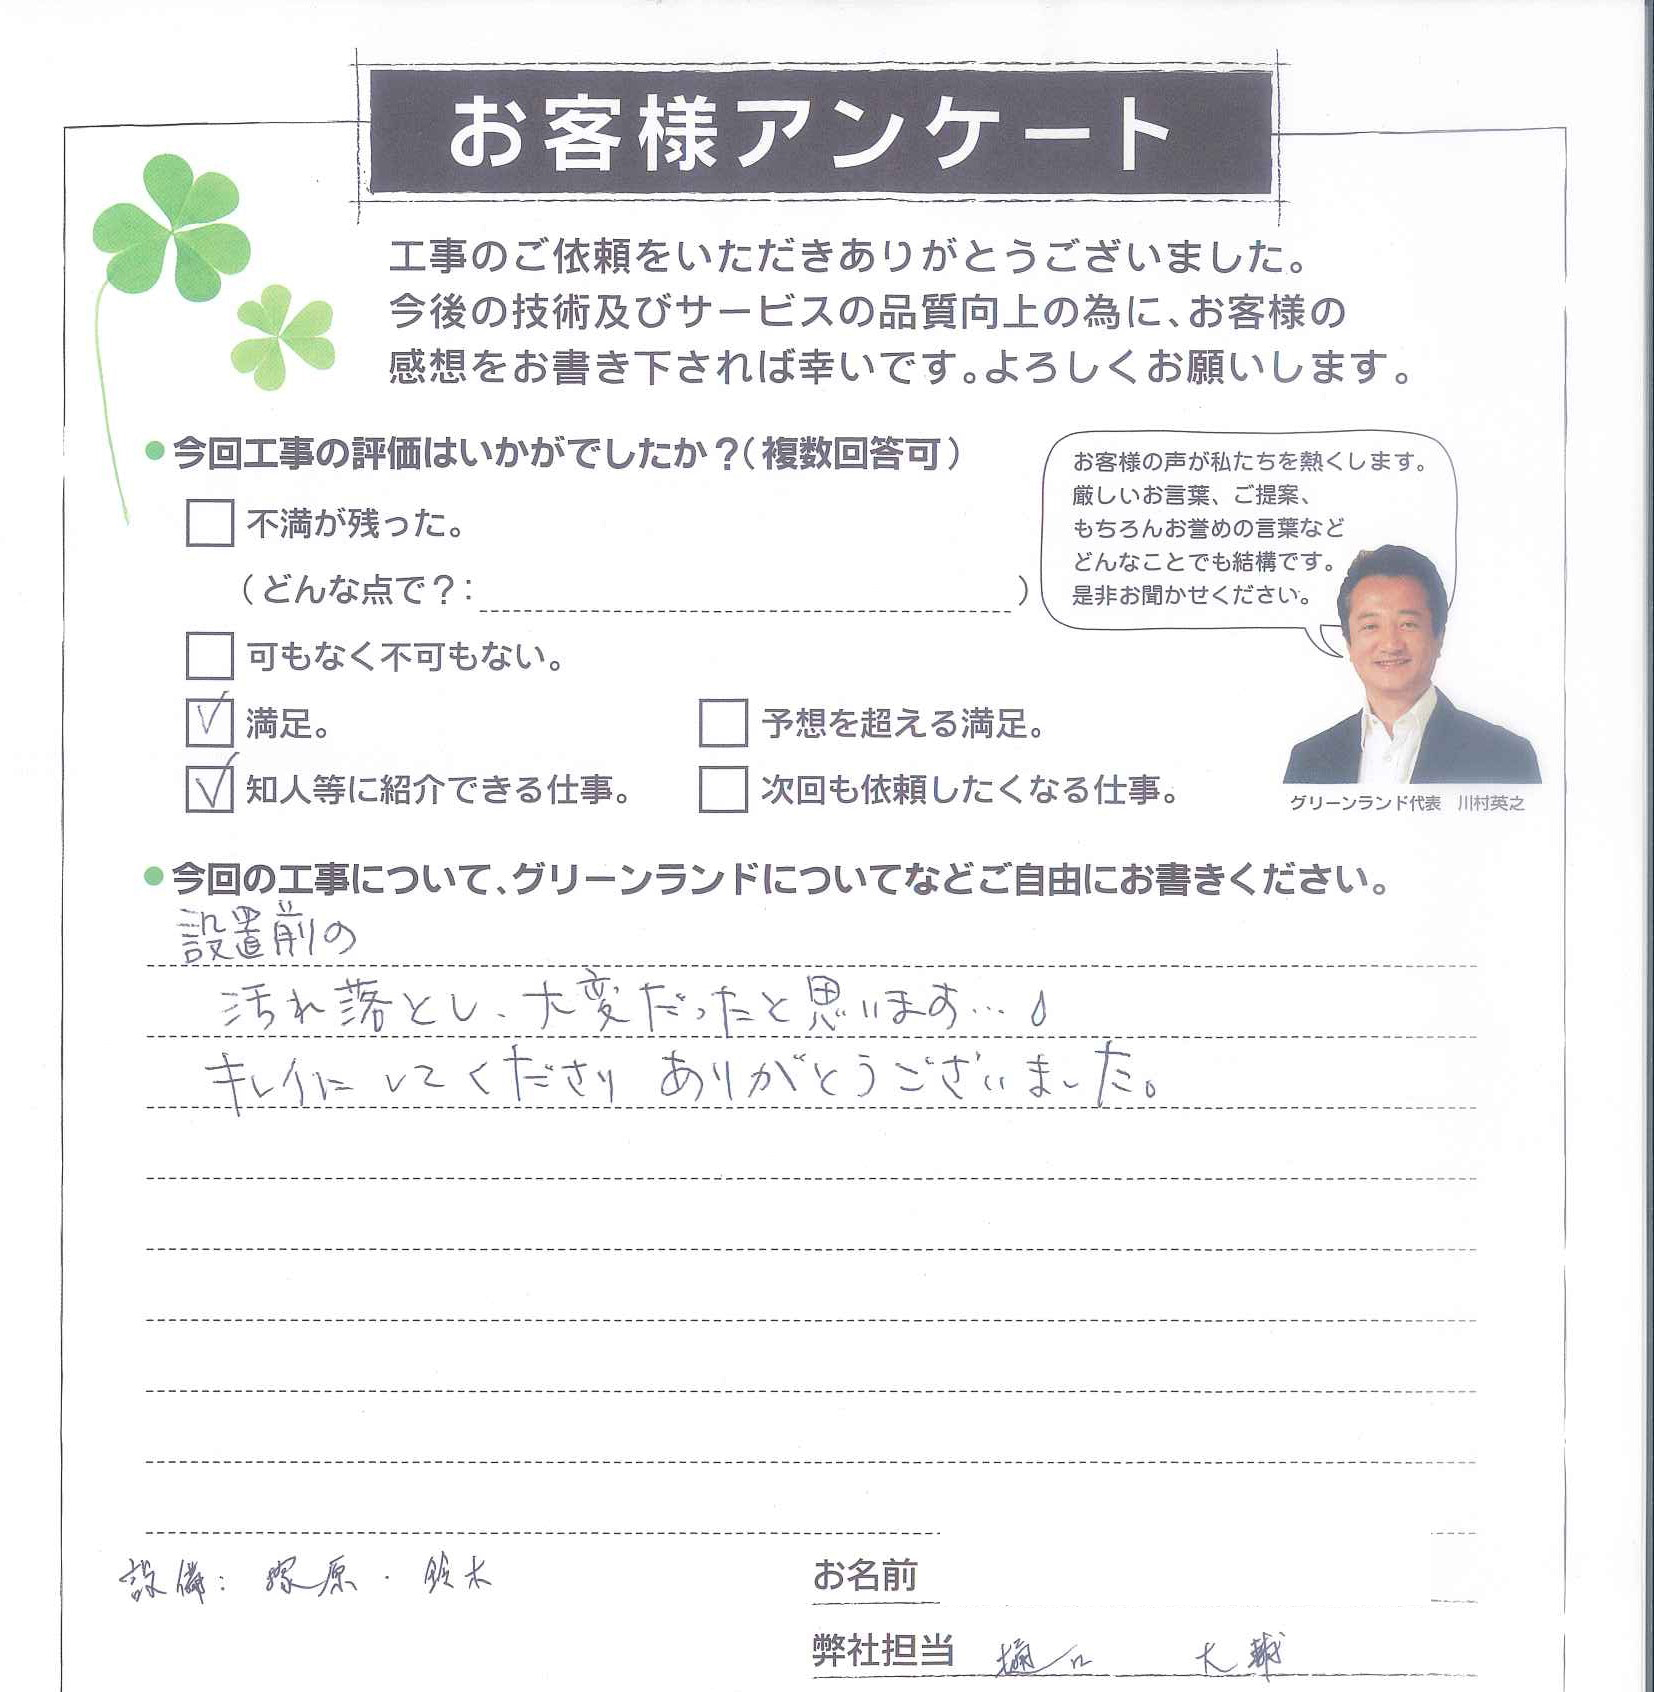 お客様アンケート
工事のご依頼をいただきありがとうございました。
今後の技術及びサービスの品質向上の為に、お客様の
感想をお書き下されば幸いです。よろしくお願いします。
●今回工事の評価はいかがでしたか？(複数回答可)
不満が残った。
(どんな点で？: )
可もなく不可もない。
満足。
予想を超える満足。
知人等に紹介できる仕事。
次回も依頼したくなる仕事。
お客様の声が私たちを熱くします。
厳しいお言葉、ご提案、
もちろんお誉めの言葉など
どんなことでも結構です。
是非お聞かせください。
グリーンランド代表 川村英之
●今回の工事について、グリーンランドについてなどご自由にお書きください。
設置前の
汚れ落とし、大変だったと思います…
キレイにしてくださり ありがとうございました。
設備: 塚原・鈴木
お名前
弊社担当 樋口 大輔